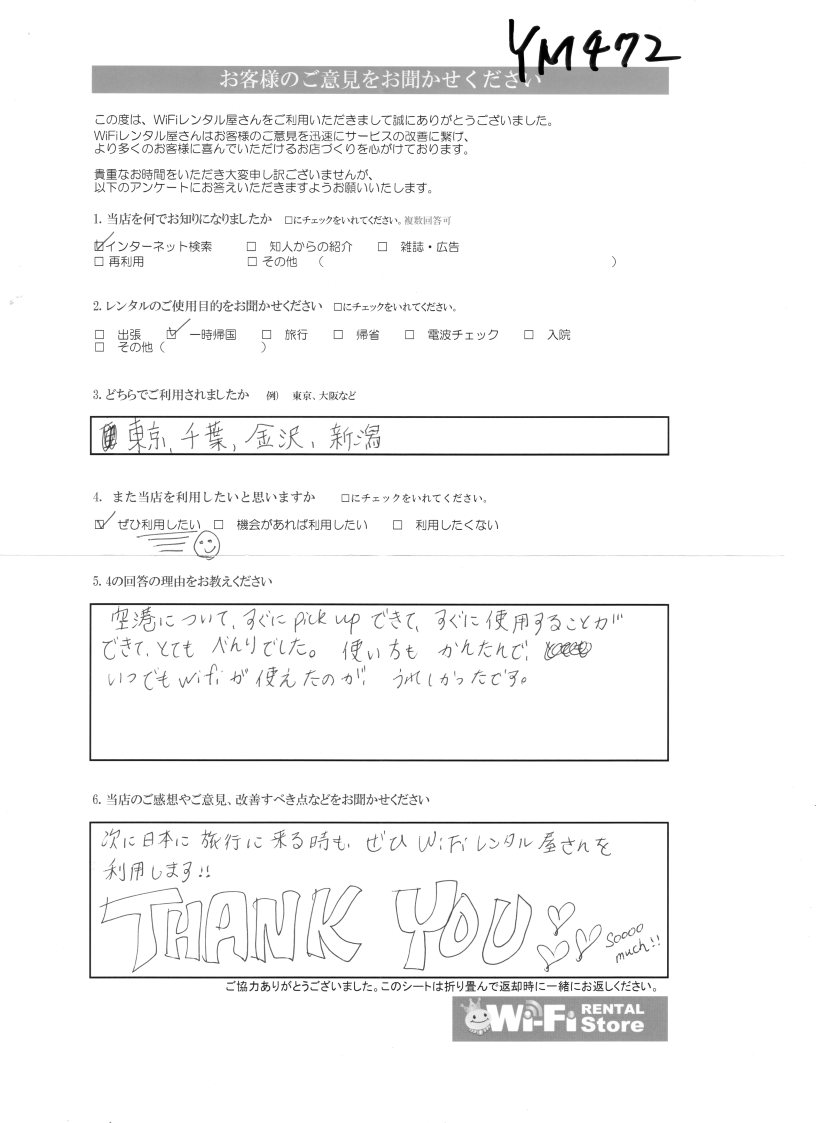 YM472
お客様のご意見をお聞かせください
この度は、WiFiレンタル屋さんをご利用いただきまして誠にありがとうございました。
WiFiレンタル屋さんはお客様のご意見を迅速にサービスの改善に繋げ、
より多くのお客様に喜んでいただけるお店づくりを心がけております。
貴重なお時間をいただき大変申し訳ございませんが、
以下のアンケートにお答えいただきますようお願いいたします。
1. 当店を何でお知りになりましたか □にチェックをいれてください。複数回答可
☑インターネット検索 □ 知人からの紹介 □ 雑誌・広告
□ 再利用 □ その他 ( )
2. レンタルのご使用目的をお聞かせください □にチェックをいれてください。
□ 出張 ☑ 一時帰国 □ 旅行 □ 帰省 □ 電波チェック □ 入院
□ その他 ( )
3. どちらでご利用されましたか 例) 東京、大阪など
東京、千葉、金沢、新潟
4. また当店を利用したいと思いますか □にチェックをいれてください。
☑ ぜひ利用したい □ 機会があれば利用したい □ 利用したくない
5. 4の回答の理由をお教えください
空港について、すぐに pick up できて、すぐに使用することが
できて、とても べんりでした。 使い方も かんたんで、
いつでも wifi が 使えたのが、 うれしかったです。
6. 当店のご感想やご意見、改善すべき点などをお聞かせください
次に日本に旅行に来る時も、ぜひ WiFi レンタル屋さんを
利用します!!
THANK YOU
soooo
much!!
ご協力ありがとうございました。このシートは折り畳んで返却時に一緒にお返しください。
Wi-Fi RENTAL
Store